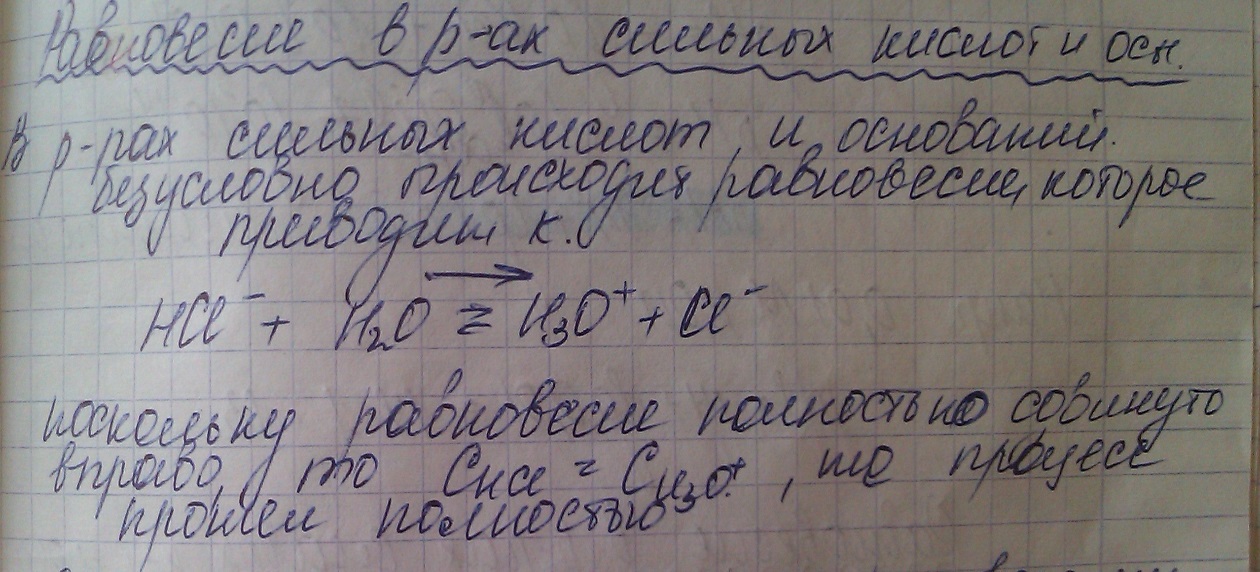 Равновесие в р-ах сильных кислот и осн.
В р-рах сильных кислот и оснований.
безусловно происходит равновесие, которое
приводит к.
HCl⁻ + H₂O ⇄ H₃O⁺ + Cl⁻
поскольку равновесие полностью сдвинуто
вправо, то C_HCl = C_H₃O⁺, то процесс
прошел полностью